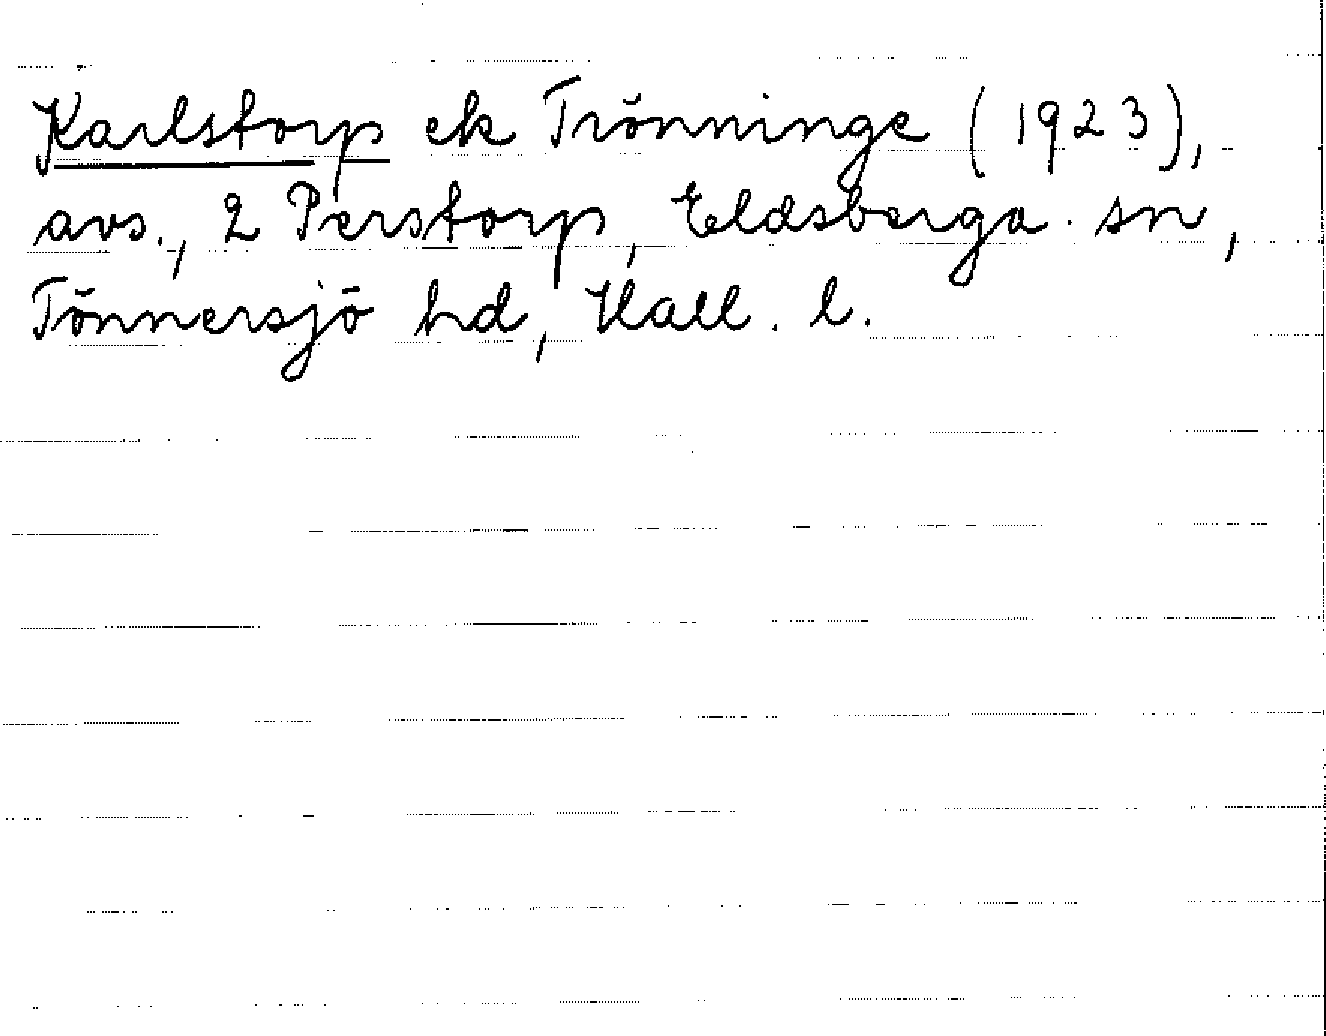 Karlstorp ek Trönninge (1923),
avs., 2 Perstorp, Eldsberga sn,
Tönnersjö hd, Hall. l.